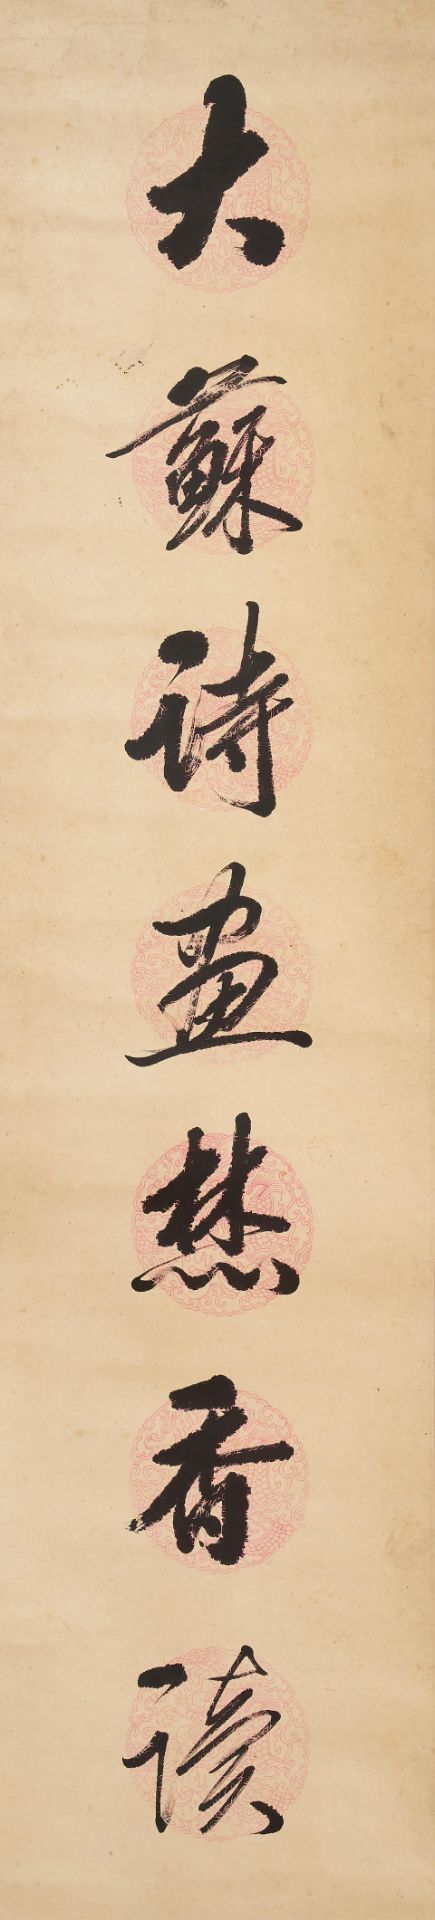 大蘇詩畫焚香讀